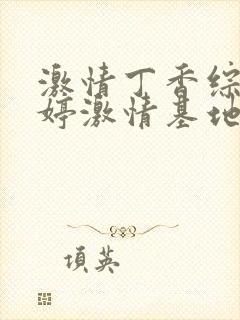 激情丁香综
婷激情基地
項英